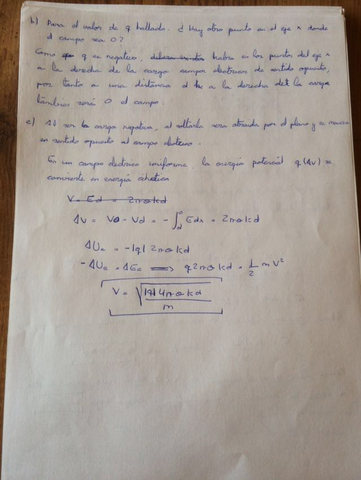 b) Para el valor de q hallado. ¿Hay otro punto en el eje x donde
el campo sea 0?
Como que q es negativa, habra en los puntos del eje x
a la derecha de la carga campos electricos de sentido opuesto,
por tanto a una distancia d a la derecha de la carga
tambien será 0 el campo.
c) Al ser la carga negativa, al soltarla sera atraida por el plano y se movera
en sentido opuesto al campo electrico.
En un campo electrico uniforme, la energia potencial q(ΔV) se
convierte en energia cinetica
V = Ed = 2πσkd
ΔV = V0 - Vd = -∫ Edx = 2πσkd
ΔUe = -|q| 2πσkd
-ΔUe = ΔEc ⟹ q2πσkd = 1/2 m V²
V = √(|q|4πσkd / m)